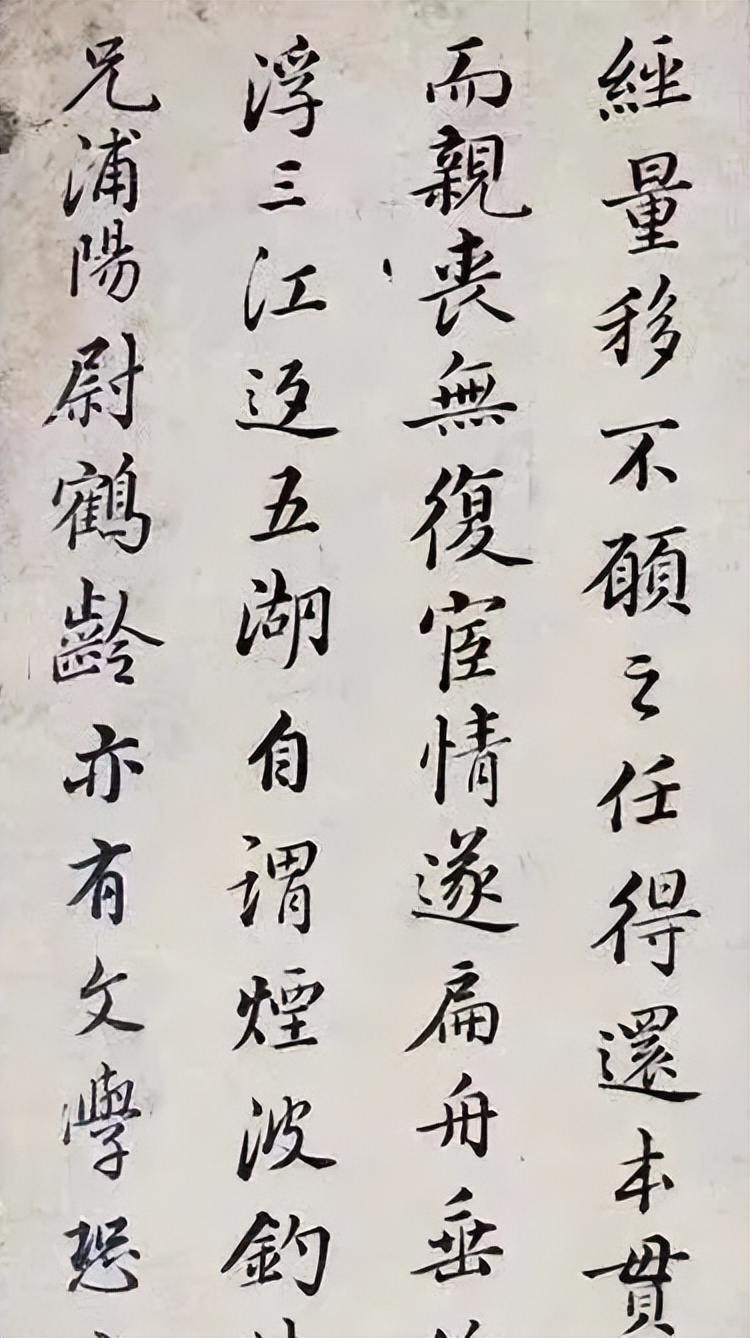 經量移不願之任得還本貫
而親喪無復宦情遂扁舟垂
浮三江泛五湖自謂煙波釣
兄浦陽尉鶴齡亦有文學恐